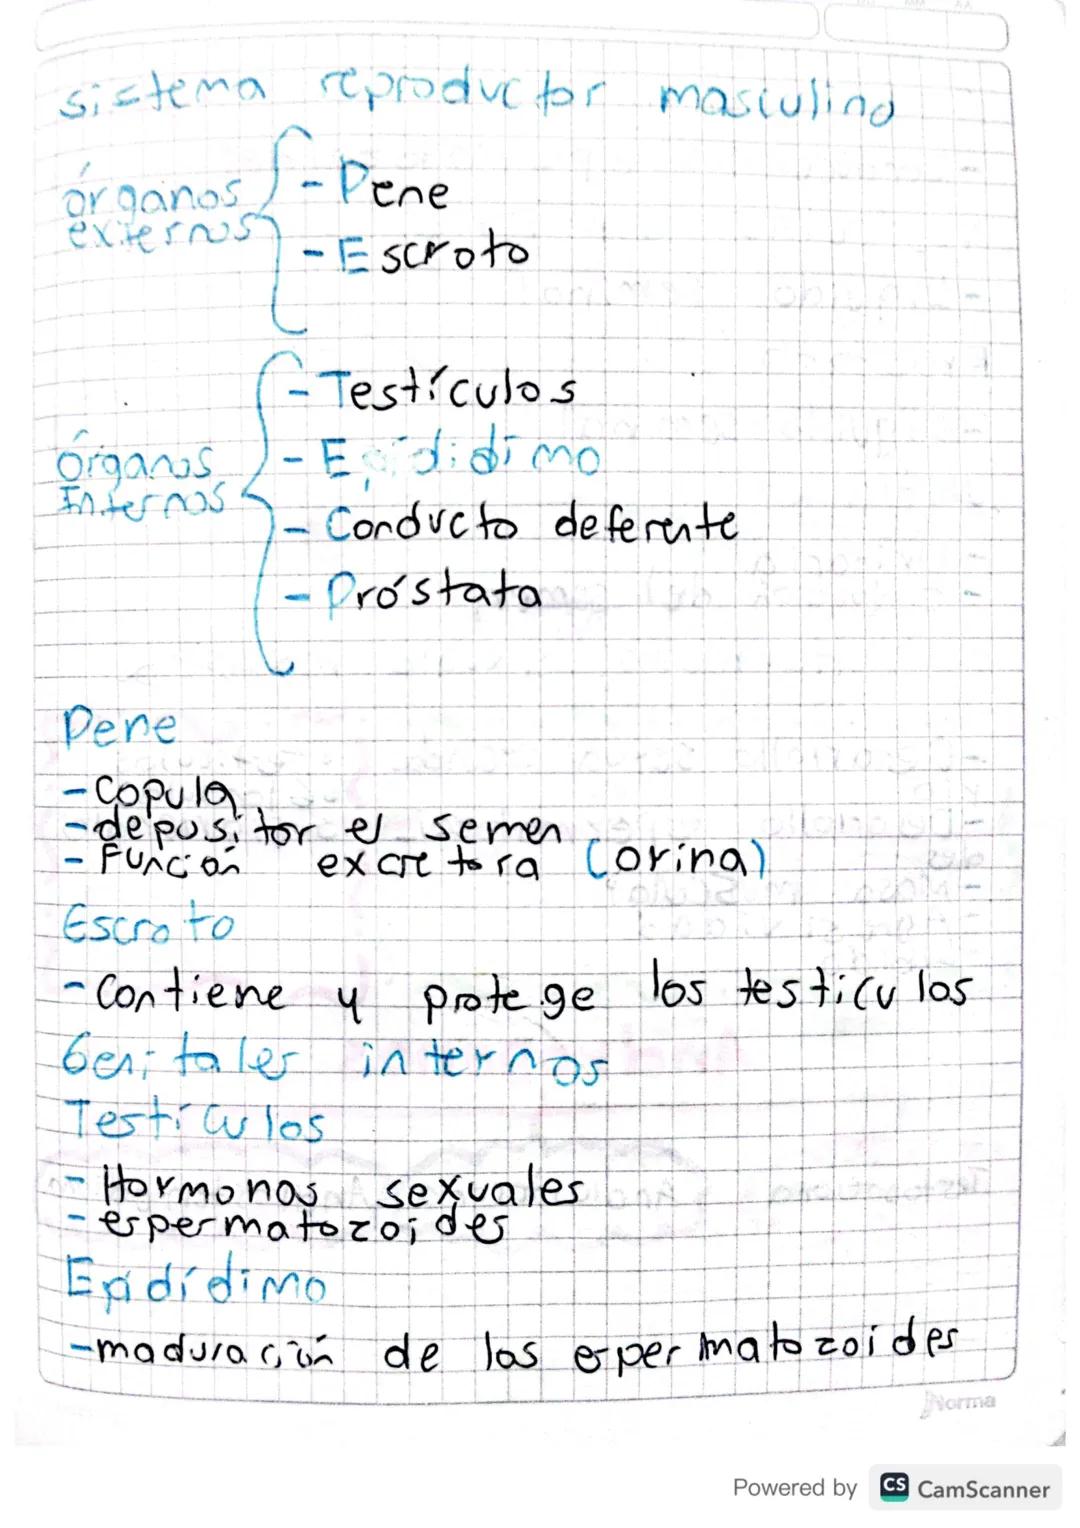 sistema reproductor masculino
órganos externos
- Pene
- Escroto
órganos Internos
- Testículos
- Epídidimo
- Conducto deferente
- Próstata
Pene
- Copula
- depositor el semen
- Función excretora (orina)
Escroto
- Contiene y protege los testiculos
Genitales internos
Testículos
- Hormonas sexuales
- espermatozoides
Epidídimo
- maduración de los espermatozoides
Norma
Powered by CS CamScanner